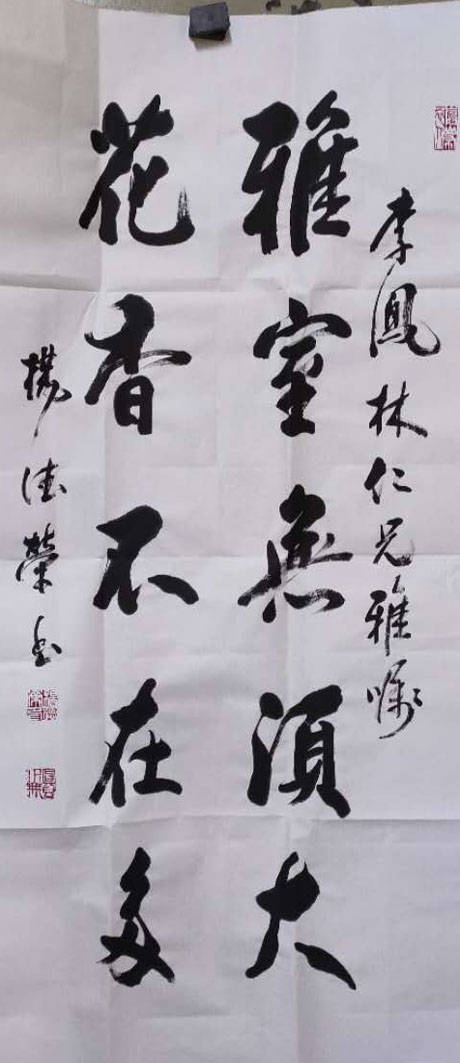 李鳳林仁兄雅嘱
雅室無須大
花香不在多
楊德榮书